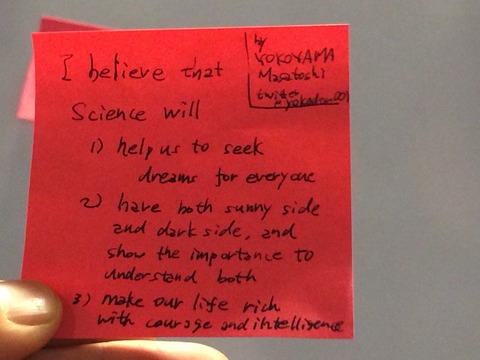 I believe that
Science will
1) help us to seek
dreams for everyone
2) have both sunny side
and dark side, and
show the importance to
understand both
3) make our life rich
with courage and intelligence
by
YOKOYAMA
Masatoshi
twitter